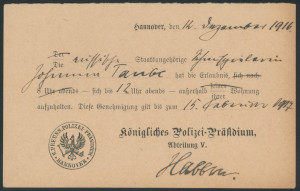 Hannover, den 14. Dezember 1916
Der
Die russische Staatsangehörige Schauspielerin
Johanna Taube hat die Erlaubnis, sich nach
Uhr abends – sich bis 12 Uhr abends – außerhalb seiner Wohnung
ihrer
aufzuhalten. Diese Genehmigung gilt bis zum 15. Februar 1917.
Königliches Polizei-Präsidium,
Abteilung V.
HANNOVER